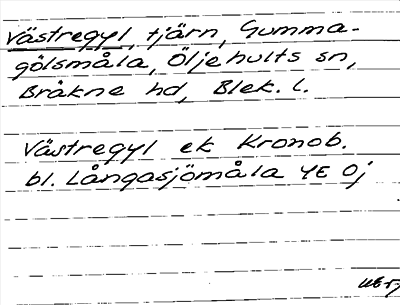 Västregyl, tjärn, Gumma-
gölsmåla, Öljehults sn,
Bräkne hd, Blek. l.
Västregyl ek Kronob.
bl. Långasjömåla YE Öj